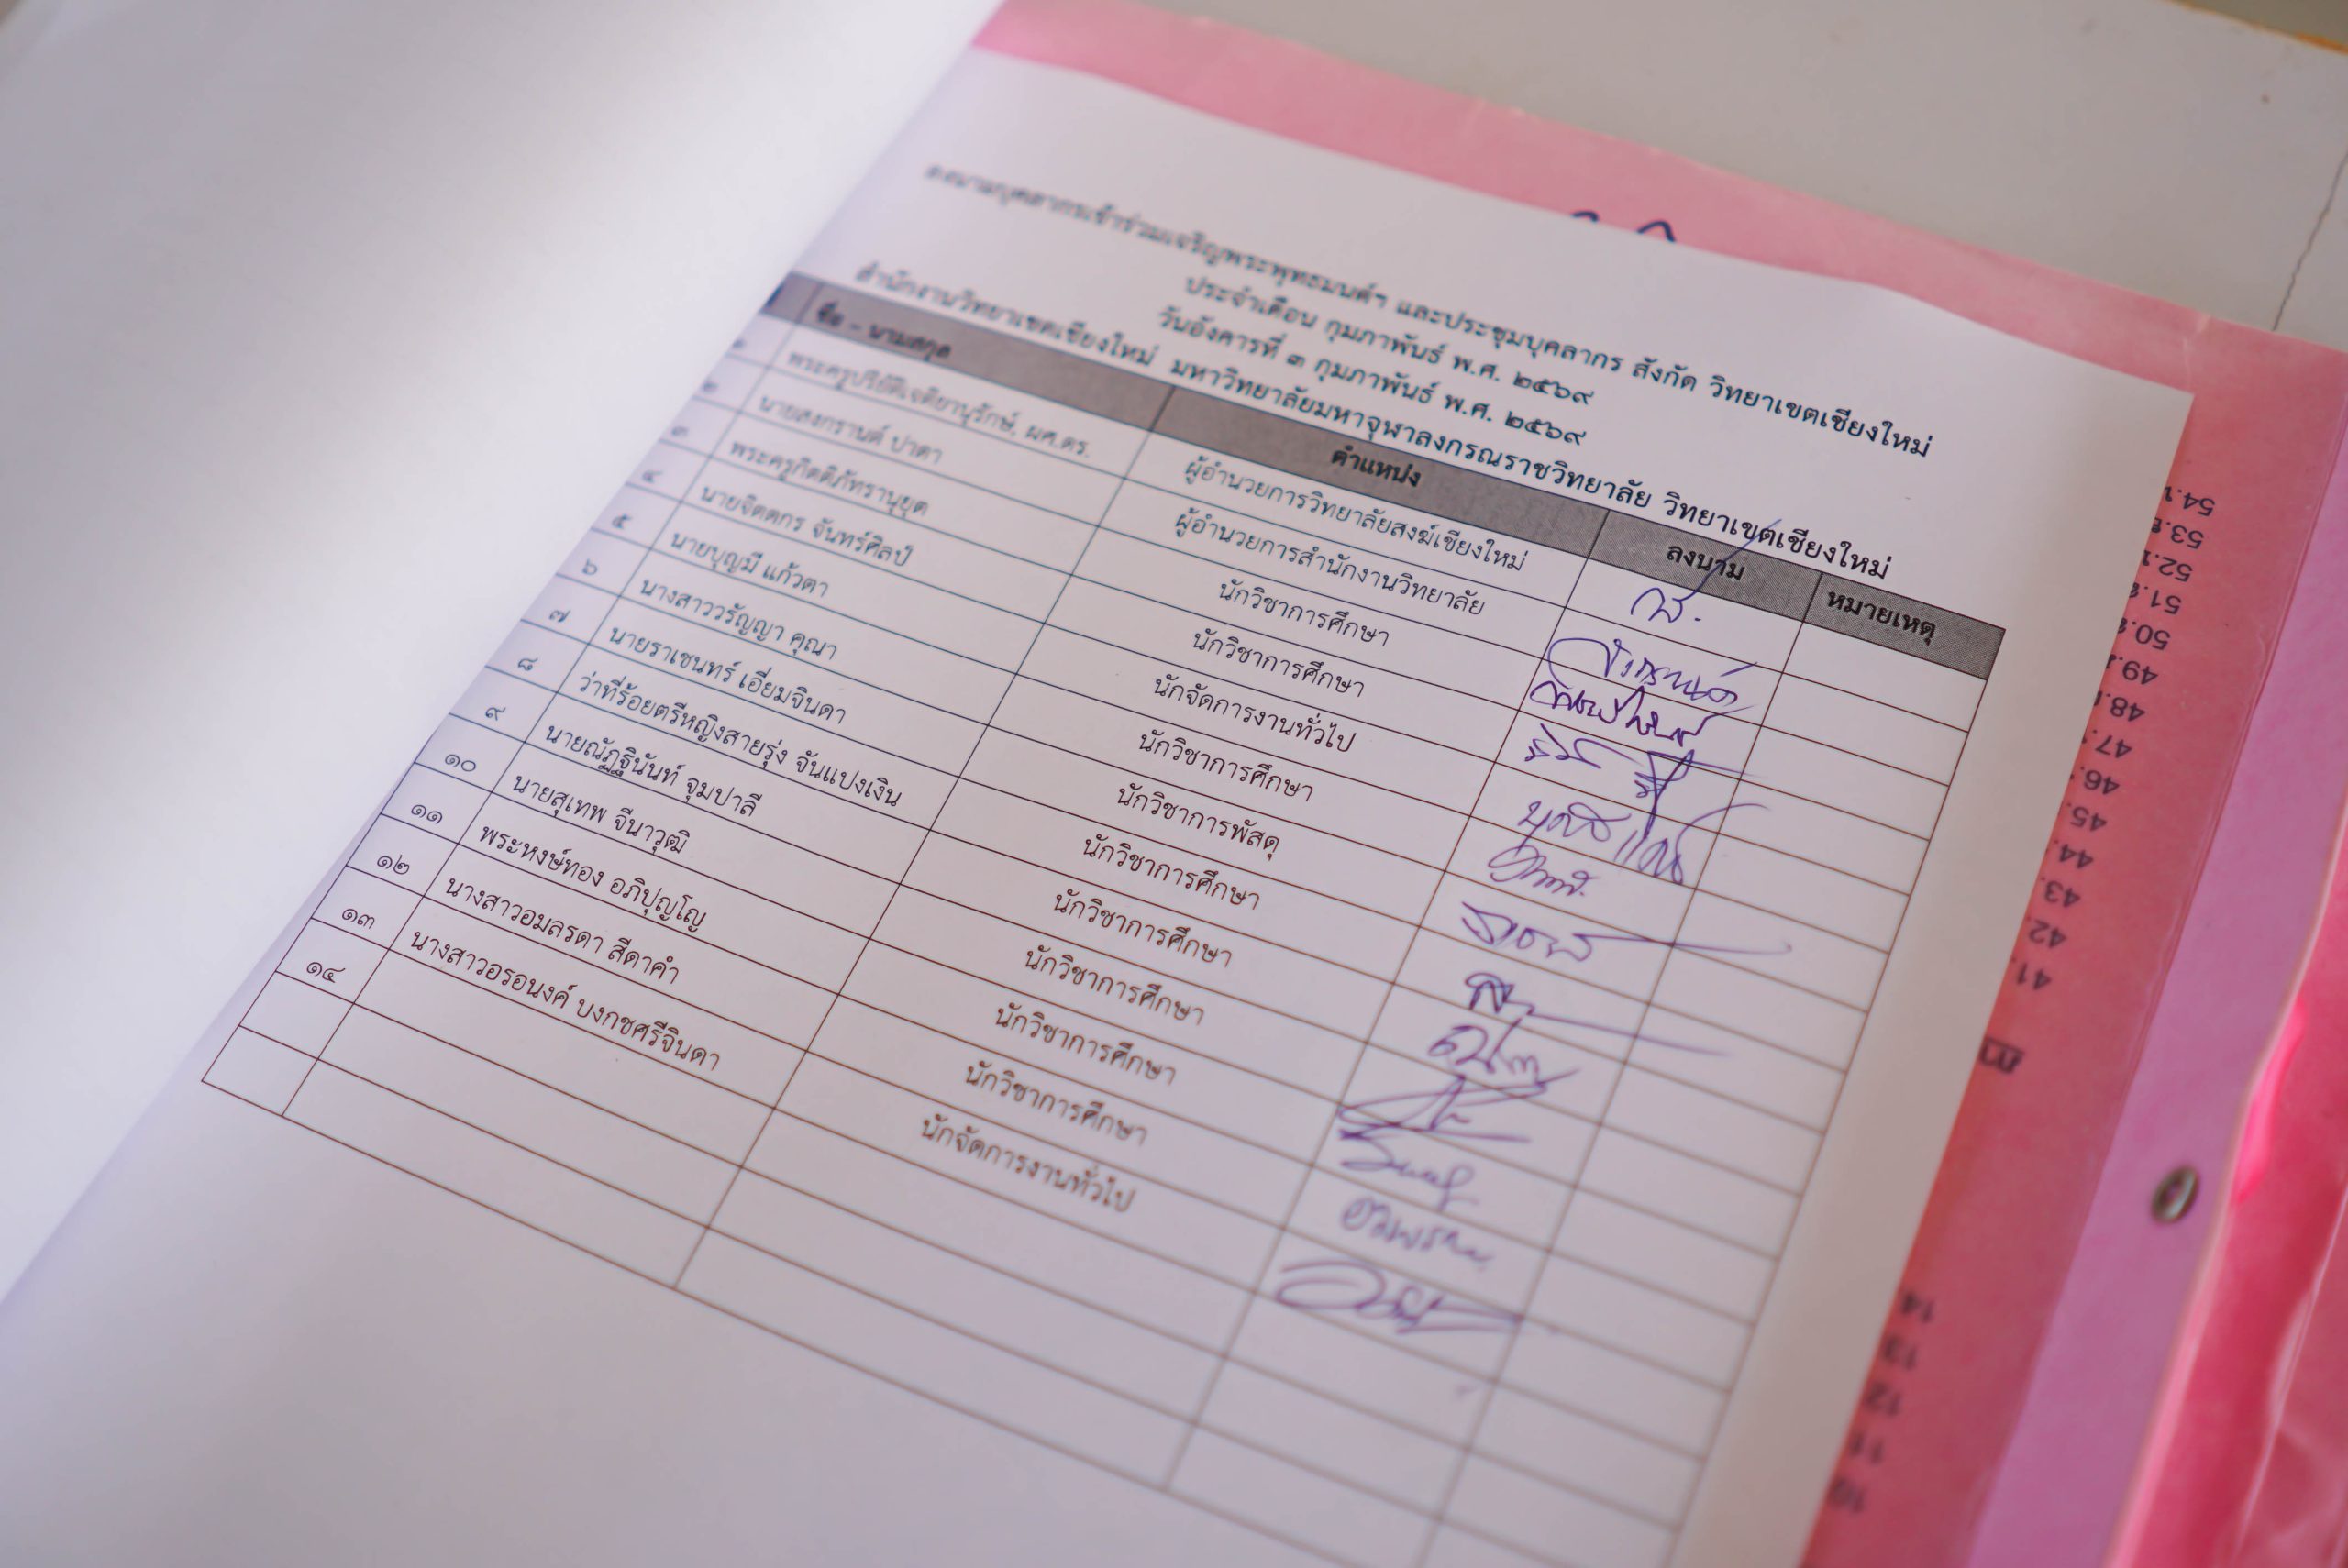 ลงนามบุคลากรเข้าร่วมเจริญพระพุทธมนต์ฯ และประชุมบุคลากร สังกัด วิทยาเขตเชียงใหม่
ประจำเดือน กุมภาพันธ์ พ.ศ. ๒๕๖๙
วันอังคารที่ ๓ กุมภาพันธ์ พ.ศ. ๒๕๖๙
สำนักงานวิทยาเขตเชียงใหม่ มหาวิทยาลัยมหาจุฬาลงกรณราชวิทยาลัย วิทยาเขตเชียงใหม่
ชื่อ – นามสกุล ตำแหน่ง ลงนาม หมายเหตุ
๑ ผศ.ดร. ผู้อำนวยการวิทยาลัยสงฆ์เชียงใหม่
๒ นายสงกรานต์ ปาดา ผู้อำนวยการสำนักงานวิทยาลัย
๓ พระครูกิตติภัทรานุยุต นักวิชาการศึกษา
๔ นายจิตตกร จันทร์ศิลป์ นักวิชาการศึกษา
๕ นายบุญมี แก้วตา นักจัดการงานทั่วไป
๖ นางสาววรัญญา คุณา นักวิชาการศึกษา
๗ นายราเชนทร์ เอี่ยมจินดา นักวิชาการพัสดุ
๘ ว่าที่ร้อยตรีหญิงสายรุ่ง จันแปงเงิน นักวิชาการศึกษา
๙ นายณัฏฐินันท์ จุมปาลี นักวิชาการศึกษา
๑๐ นายสุเทพ จีนาวุฒิ นักวิชาการศึกษา
๑๑ พระหงษ์ทอง อภิปุญโญ นักวิชาการศึกษา
๑๒ นางสาวอมลรดา สีดาคำ นักวิชาการศึกษา
๑๓ นางสาวอรอนงค์ บงกชศรีจินดา นักจัดการงานทั่วไป
๑๔
54.
53.
52.
51.
50.
49.
48.
47.
46.
45.
44.
43.
42.
41.
14
13
12
11
10